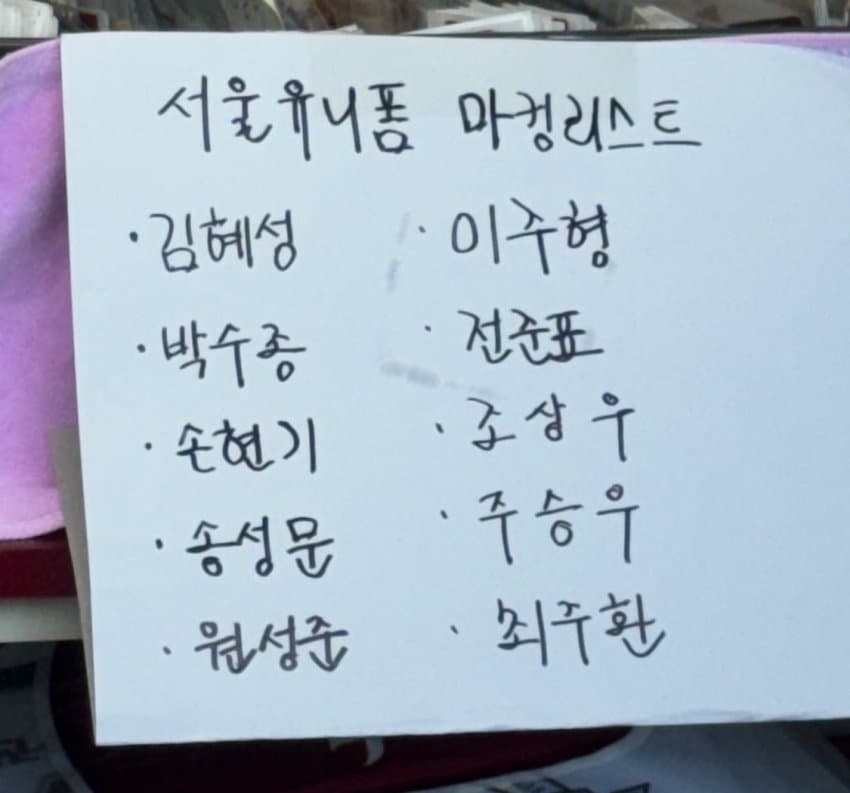 서울유니폼 마킹리스트
· 김혜성 · 이주형
· 박수종 · 전준표
· 손현기 · 조상우
· 송성문 · 주승우
· 원성준 · 최주환